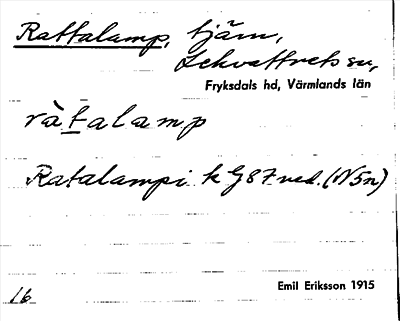 Rattalamp, tjärn,
Lekvattnets sn,
Fryksdals hd, Värmlands län
ràtalamp
Ratalampi k G87 ved. (N5n)
16 Emil Eriksson 1915